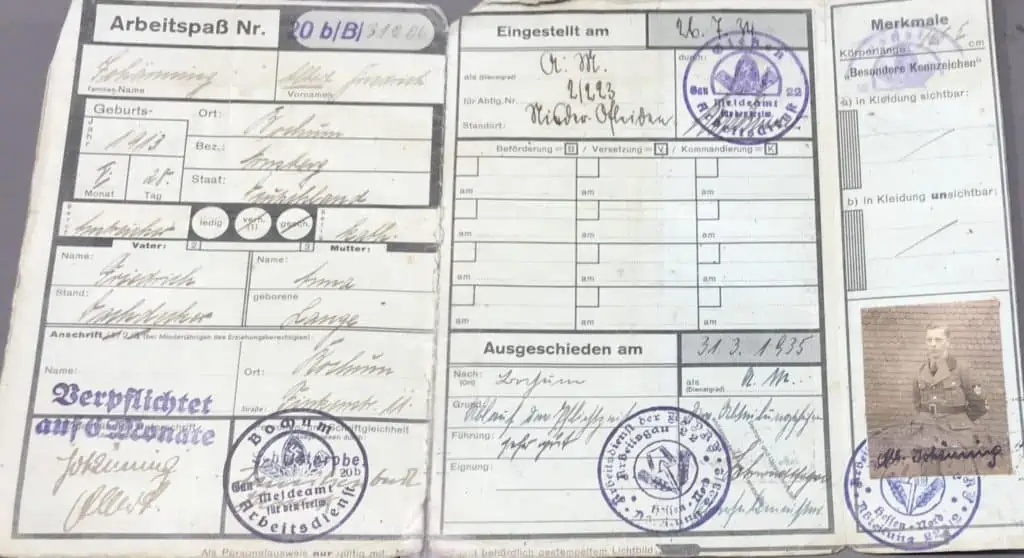 Arbeitspaß Nr. 20 b/B/ 31206
Familien-Name
Vornamen
Albert Friedrich
Geburts-
Jahr 1913
Monat
Tag
Ort: Bochum
Bez.: Arnsberg
Staat: Deutschland
ledig verh. (1) gesch.
kath.
Vater: 2 3 Mutter:
Name: Friedrich
Stand: Dachdecker
Name: Anna
geborene Lange
Anschrift (bei Minderjährigen des Erziehungsberechtigten):
Name:
Ort: Bochum
Straße: 11
Verpflichtet
auf 6 Monate
Albert
Bochum
Gau 20b
Meldeamt
für den freiw.
Arbeitsdienst
Als Personalausweis nur gültig mit
Eingestellt am 26.7.34
als (Dienstgrad) A. M.
durch:
für Abtlg. Nr. 2/223
Standort: Nieder-Ofleiden
Gießen
Gau 22
Meldeamt
für den freiw.
Arbeitsdienst
Beförderung = B / Versetzung = V / Kommandierung = K
am am am
am am am
am am am
am am am
Ausgeschieden am 31.3.1935
Nach: (Ort) Bochum
als (Dienstgrad) A. M.
Grund: Ablauf der Pflichtzeit
Führung: sehr gut
Eignung:
Der Abteilungsführer
Arbeitsgau 22
Hessen-Nord
und behördlich gestempeltem Lichtbild
Merkmale
Körperlänge: cm
„Besondere Kennzeichen"
a) in Kleidung sichtbar:
b) in Kleidung unsichtbar:
Hessen-Nord